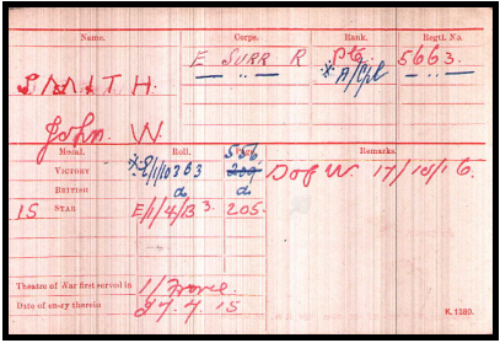 Name. Corps. Rank. Regtl. No.
E SURR R Pte. 5663.
— " — * A/Cpl — " —
SMITH.
John. W.
Medal. Roll. Page. Remarks.
556.
VICTORY *E/1/10 B63 209 D of W. 17/10/16.
BRITISH do do
15 STAR E/1/4/B3. 205.
Theatre of War first served in 1/France.
Date of entry therein 27.7.15
K. 1380.